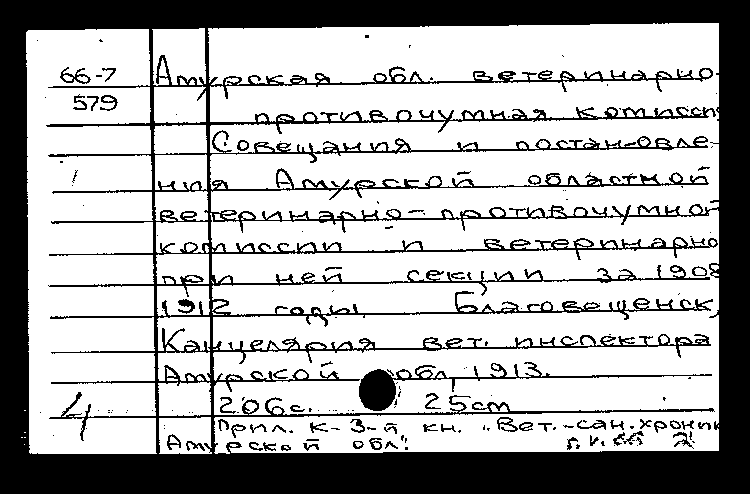 66-7 Амурская обл. ветеринарно-
579 противочумная комисси
Совещания и постановле-
ния Амурской областной
ветеринарно-противочумной
комиссии и ветеринарно
при ней секции за 1908
1912 годы. Благовещенск,
Канцелярия вет. инспектора
Амурской обл, 1913.
4 206с. 25cm
Прил. к 3-й кн. "Вет.-сан. хроник
Амурской обл".